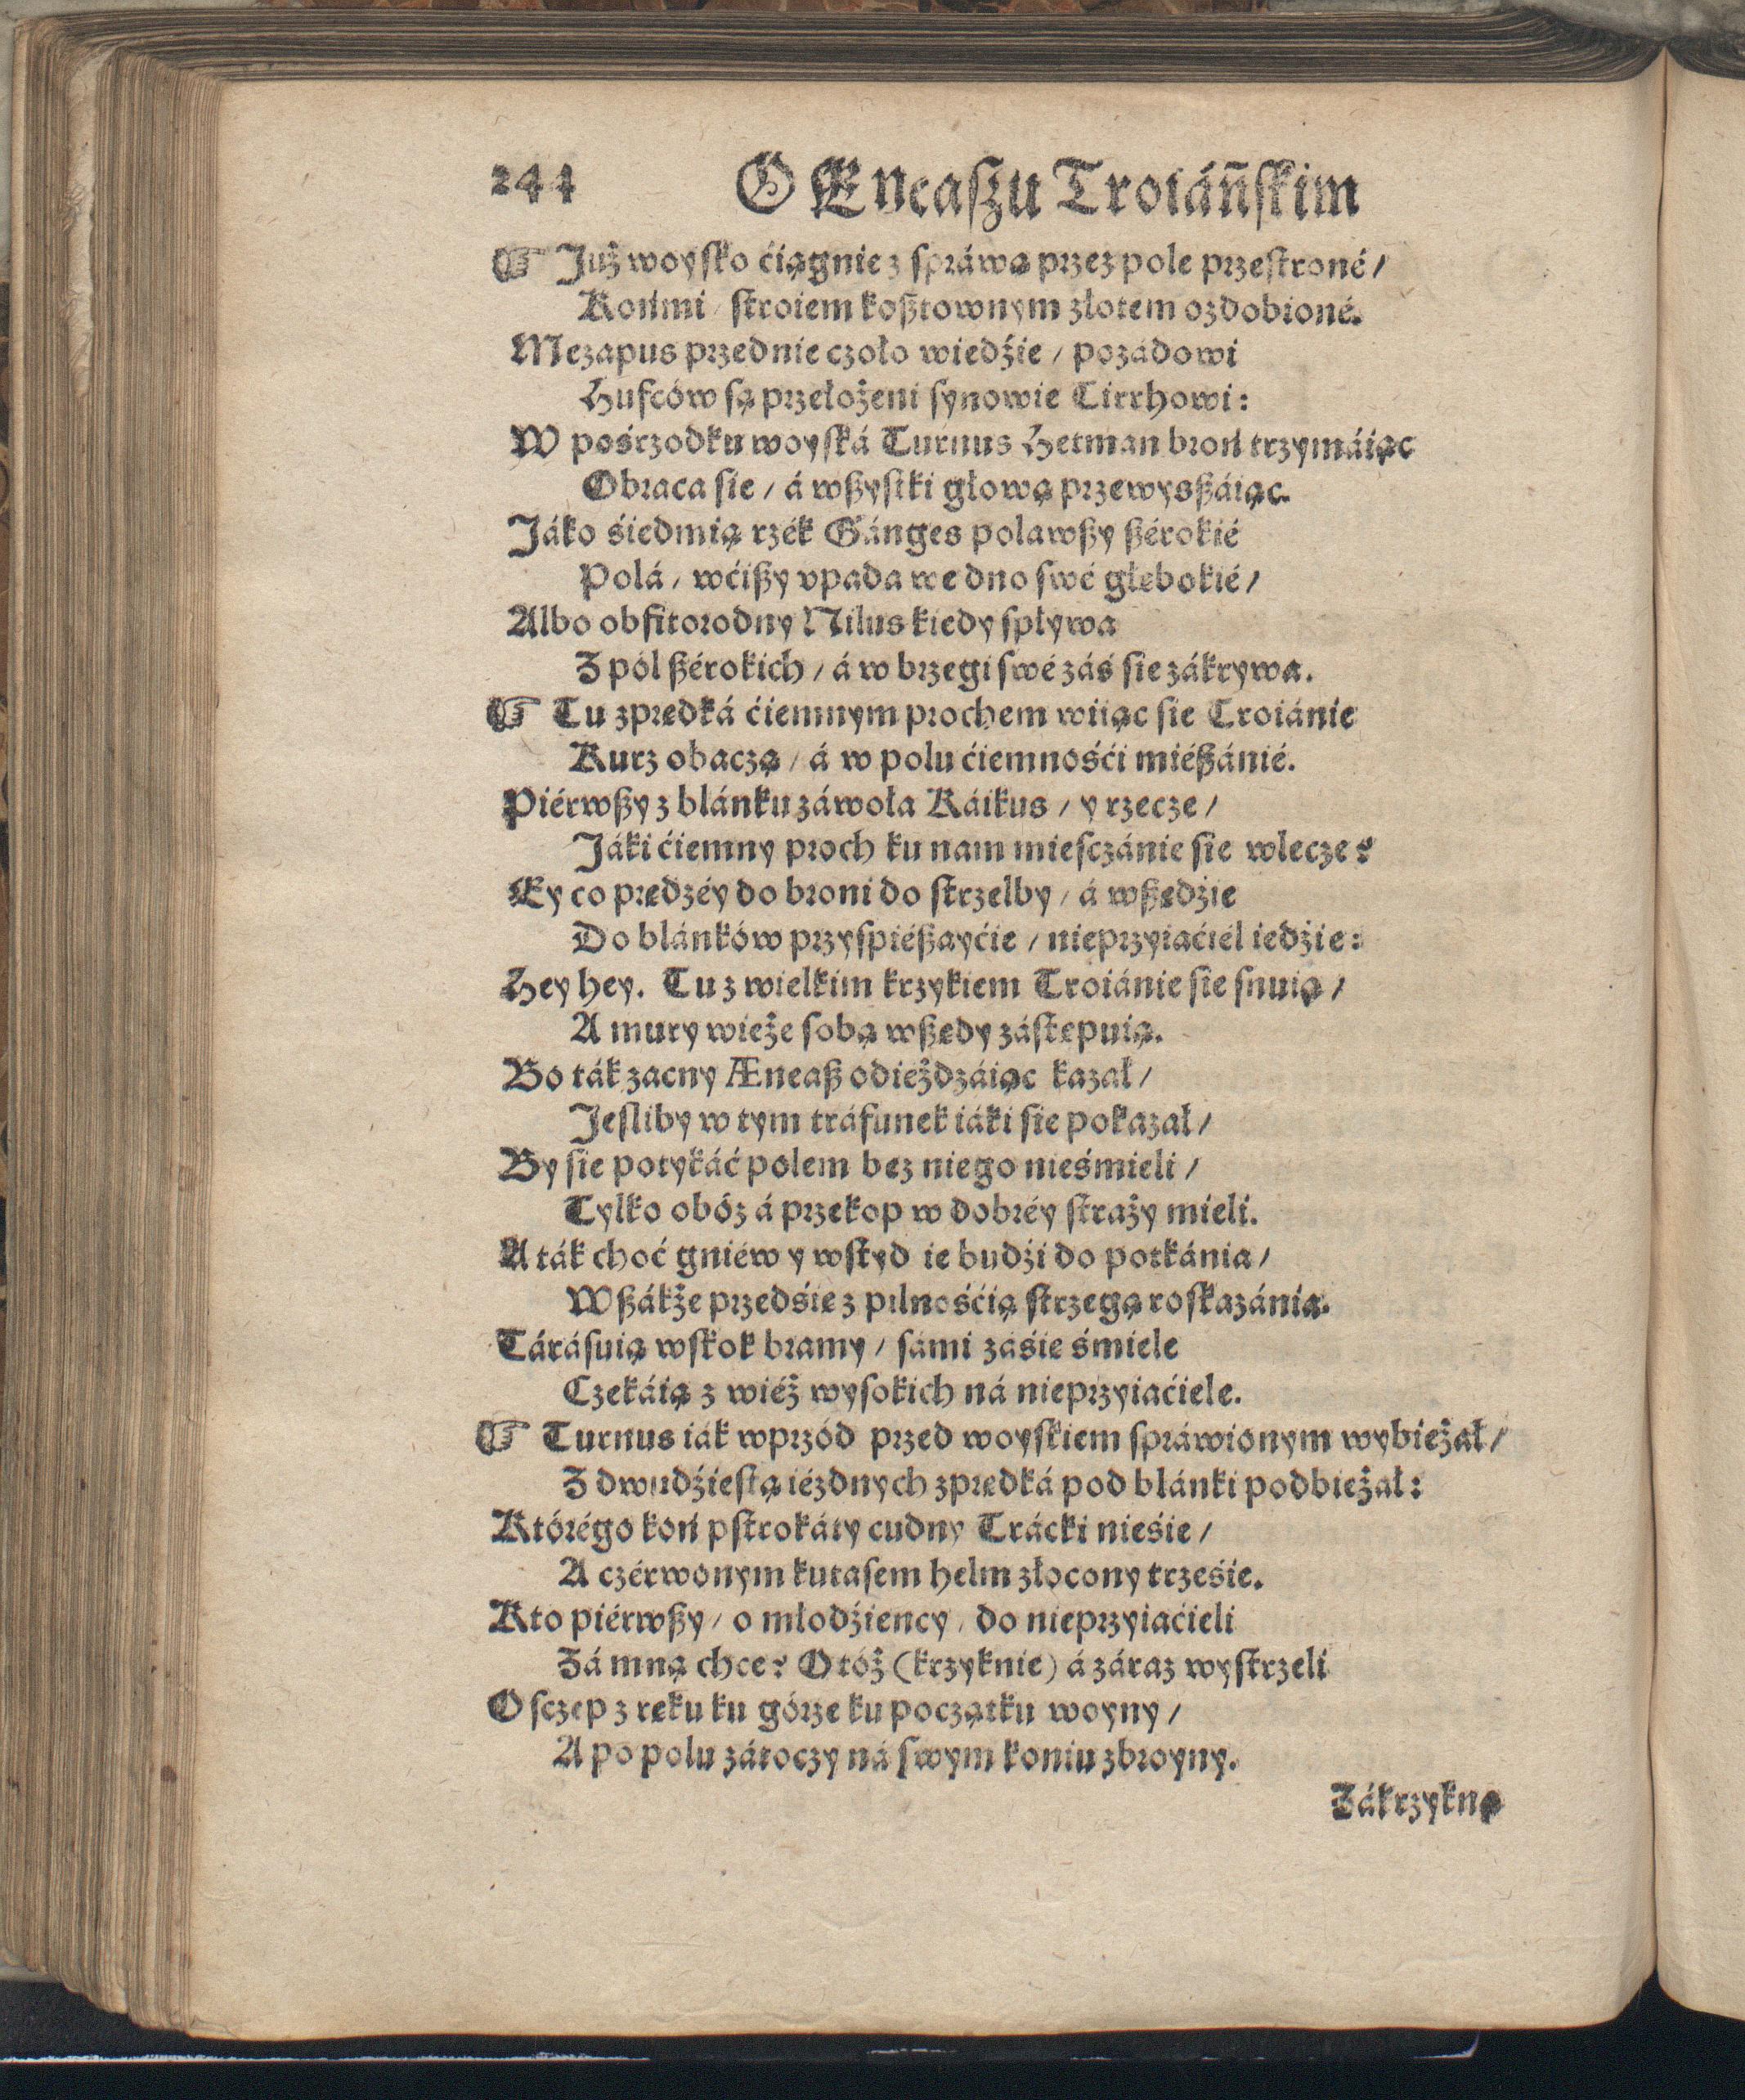 244 O ENeaſzu Troiáñſkim
☞ Już woyſko ćiągnie z ſpráwą przez pole przeſtroné /
Końmi / ſtroiem koßtownym złotem ozdobioné.
Mezapus przednie czoło wiedźie / pozádowi
Hufców ſą przełożeni ſynowie Tirrhowi:
W pośrzodku woyſká Turnus Hetman broń trzymáiąc
Obraca ſie / á wßyſtki głową przewysßáiąc.
Jáko śiedmią rzék Gánges polawßy ßérokié
Polá / wćißy vpada we dno ſwé głębokié /
Albo obfitorodny Nilus kiedy ſpływa
Z pól ßérokich / á w brzegi ſwé záś ſie zákrywa.
☞ Tu zprędká ćiemnym prochem wiiąc ſie Troiánie
Kurz obaczą / á w polu ćiemnośći miéßánié.
Piérwßy z blánku záwoła Káikus / y rzecze /
Jáki ćiemny proch ku nam mieſczánie ſie wlecze?
Ey co prędzéy do broni do ſtrzelby / á wßędźie
Do blánków przyſpiéßayćie / nieprzyiaćiél iedźie:
Hey hey. Tu z wielkim krzykiem Troiánie ſie ſnuią /
A mury wieże ſobą wßędy záſtępuią.
Bo ták zacny Æneaß odieżdzáiąc kazał /
Jeſliby w tym tráfunek iáki ſie pokazał /
By ſie potykáć polem bez niego nieśmieli /
Tylko obóz á przekop w dobréy ſtraży mieli.
A ták choć gniéw y wſtyd ie budźi do potkánia /
Wßákże przedśie z pilnośćią ſtrzegą roſkazánia.
Tárásuią wſkok bramy / sámi záśie śmiele
Czekáią z wiéż wyſokich ná nieprzyiaćiele.
☞ Turnus iák wprzód przed woyſkiem ſpráwionym wybieżał /
Z dwudźieſtą iézdnych zprędká pod blánki podbieżał:
Którégo koń pſtrokáty cudny Trácki nieśie /
A czérwonym kutaſem helm złocony trzęśie.
Kto piérwßy / o młodźiency / do nieprzyiaćieli
Zá mną chce? Otóż (krzyknie) á záraz wyſtrzeli
Oſczep z ręku ku górze ku początku woyny /
A po polu zátoczy ná ſwym koniu zbroyny.
Zákrzykną